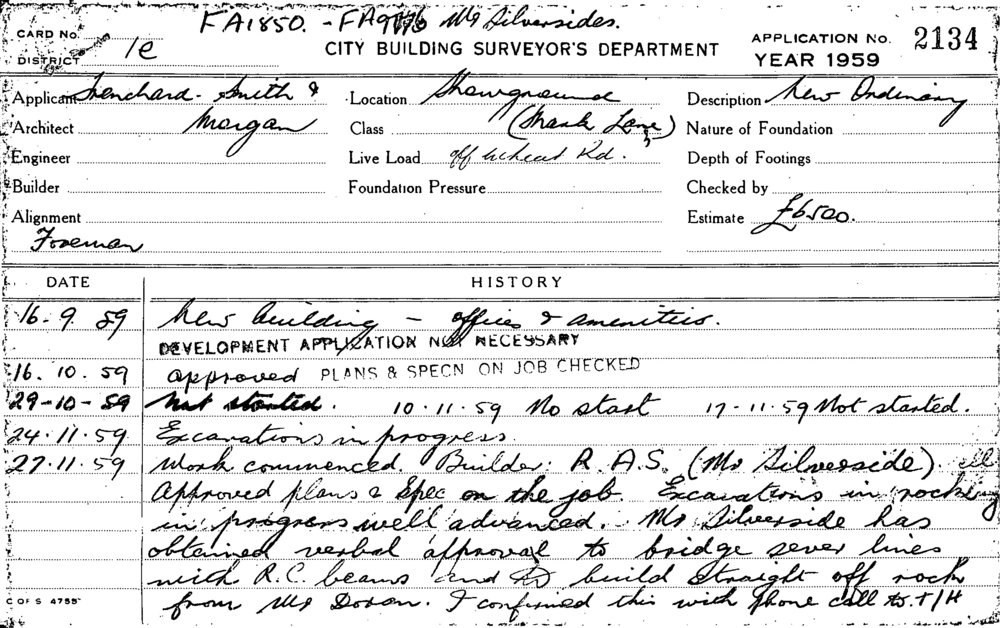 FA1850. - FA9776 Mr Silversides.
CARD No.
DISTRICT 1e
CITY BUILDING SURVEYOR'S DEPARTMENT
APPLICATION No. 2134
YEAR 1959
Applicant Trenchard-Smith & Location Showground Description New Ordinary
Architect Morgan Class (Mark Lane) Nature of Foundation
Engineer Live Load off Rd. Depth of Footings
Builder Foundation Pressure Checked by
Alignment Estimate £6500.
Foreman
DATE HISTORY
16.9.59 New building - offices & amenities.
DEVELOPMENT APPLICATION NOT NECESSARY
16.10.59 approved PLANS & SPECN ON JOB CHECKED
29-10-59 Not started. 10.11.59 No start 17-11.59 Not started.
24.11.59 Excavations in progress.
27.11.59 Work commenced. Builder: R.A.S. (Mr Silverside).
Approved plans & Spec on the job. Excavations in rock
in progress well advanced. Mr Silverside has
obtained verbal approval to bridge sewer lines
with R.C. beams and to build straight off rock
from Mr Doran. I confirmed this with phone call to T/H
C OF S 4755